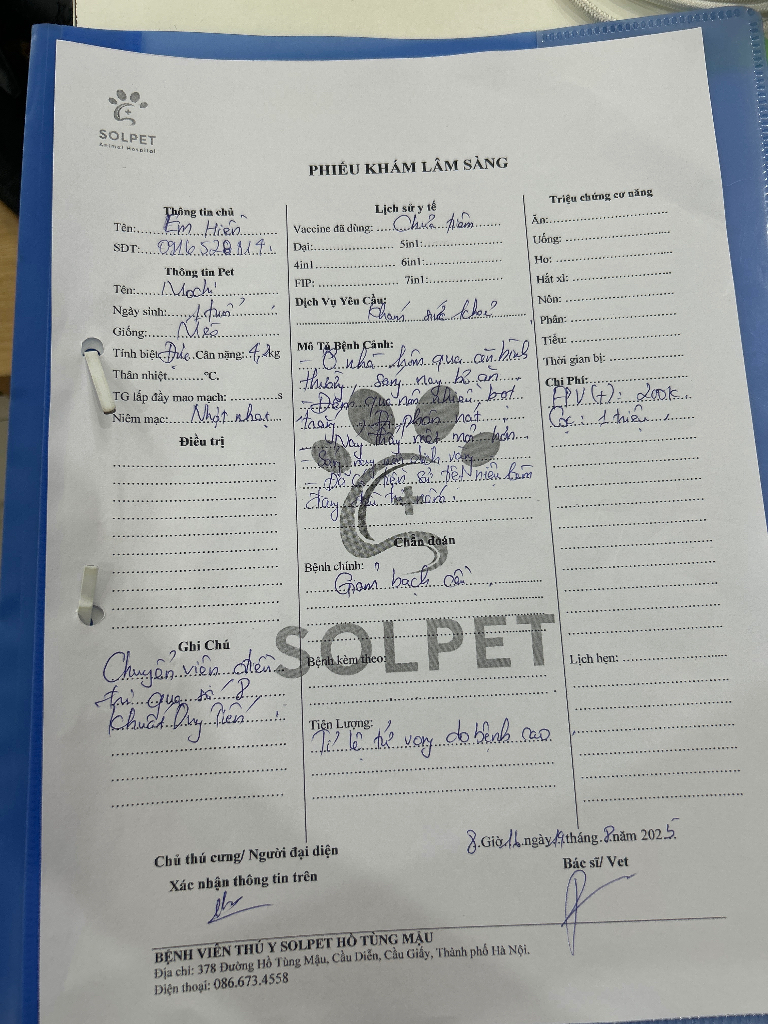 SOLPET
Animal Hospital
PHIẾU KHÁM LÂM SÀNG
Thông tin chủ
Tên: Em Hiền
SĐT:
Thông tin Pet
Tên: Mochi
Ngày sinh: 1 tuổi
Giống: Mèo
Tính biệt: Đực Cân nặng: 4, kg
Thân nhiệt °C.
TG lấp đầy mao mạch: s
Niêm mạc: Nhợt nhạt
Điều trị
Ghi Chú
Chuyển viện điều
trị qua số 8
Khuất Duy Tiến
Lịch sử y tế
Vaccine đã dùng: Chưa tiêm
Dại: 5in1:
4in1 6in1:
FIP: 7in1:
Dịch Vụ Yêu Cầu:
Khám sức khoẻ
Mô Tả Bệnh Cảnh:
- Ở nhà hôm qua ăn bình
thường, sáng nay bỏ ăn
- Đêm qua nôn nhiều, bọt
trắng, phân nát
- Nay thấy mệt mỏi hơn
- Sáng nay dịch vàng
- Đã có tiền sử
Chẩn đoán
Bệnh chính:
Giảm bạch cầu
SOLPET
Bệnh kèm theo:
Tiên Lượng:
Tỉ lệ tử vong do bệnh cao
Triệu chứng cơ năng
Ăn:
Uống:
Ho:
Hắt xì:
Nôn:
Phân:
Tiểu:
Thời gian bị:
Chi Phí:
FPV (+): 200k
Cọc: 1 triệu
Lịch hẹn:
8 Giờ 16 ngày 19 tháng 8 năm 2025
Chủ thú cưng/ Người đại diện
Xác nhận thông tin trên
Bác sĩ/ Vet
BỆNH VIỆN THÚ Y SOLPET HỒ TÙNG MẬU
Địa chỉ: 378 Đường Hồ Tùng Mậu, Cầu Diễn, Cầu Giấy, Thành phố Hà Nội.
Điện thoại: 086.673.4558